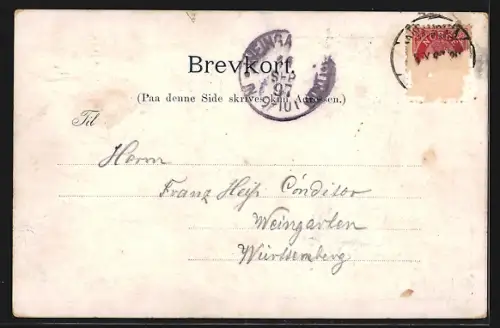 WEINGA
SEP
97
9-10
Brevkort.
(Paa denne Side skrives kun Adressen.)
Til
Herrn
Franz Heiß Conditor
Weingarten
Württemberg